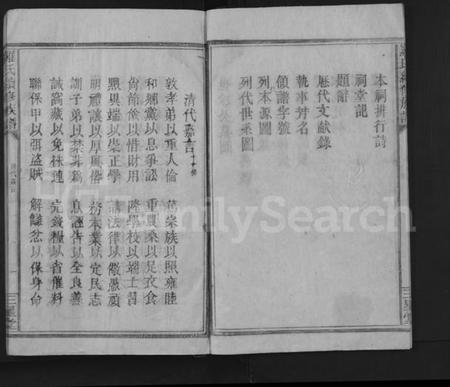 本祠排行詩
祠堂記
題諧
歷代文獻錄
執事芳名
領譜字號
列本源圖
列代世系圖
清代嘉言十六條
敦孝弟以重人倫 篤宗族以照雍睦
和鄉黨以息爭訟 重農桑以足衣食
尚節儉以惜財用 隆學校以端士習
黜異端以崇正學 講法律以儆愚頑
明禮讓以厚風俗 務本業以定民志
訓子弟以禁非為 息誣告以全良善
誡窩藏以免株連 完錢糧以省催科
聯保甲以弭盜賊 解讎忿以保身命
羅氏續修族譜
清代嘉言
三星堂
FamilySearch